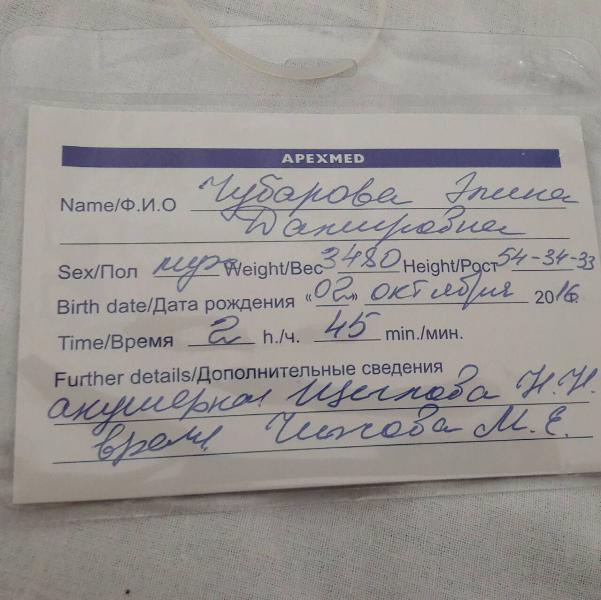 APEXMED
Name/Ф.И.О Чубарова Элина
Дамировна
Sex/Пол муж Weight/Вес 3480 Height/Рост 54-34-33
Birth date/Дата рождения «02» октября 2016
Time/Время 2 h./ч. 45 min./мин.
Further details/Дополнительные сведения
акушерка Щеглова Н.Н.
врач Чижова М.Е.